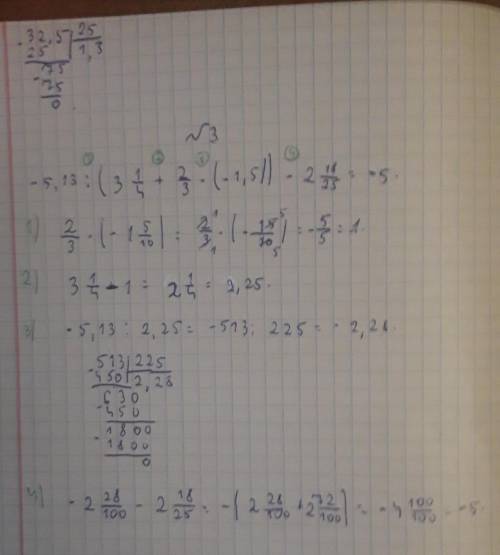 -32,5 | 25
25 | 1,3
75
-75
0
√3
① ② ① ④
-5,13 : (3 1/4 + 2/3 · (-1,5)) - 2 18/25 = -5.
1) 2/3 · (-1 5/10) = 2/3 · (-15/10) = -5/5 = 1.
2) 3 1/4 - 1 = 2 1/4 = 2,25.
3) -5,13 : 2,25 = -513 : 225 = - 2,28.
-513 | 225
450 | 2,28
630
-450
1800
-1800
0
4) - 2 28/100 - 2 18/25 = -(2 28/100 + 2 72/100) = -4 100/100 = -5.